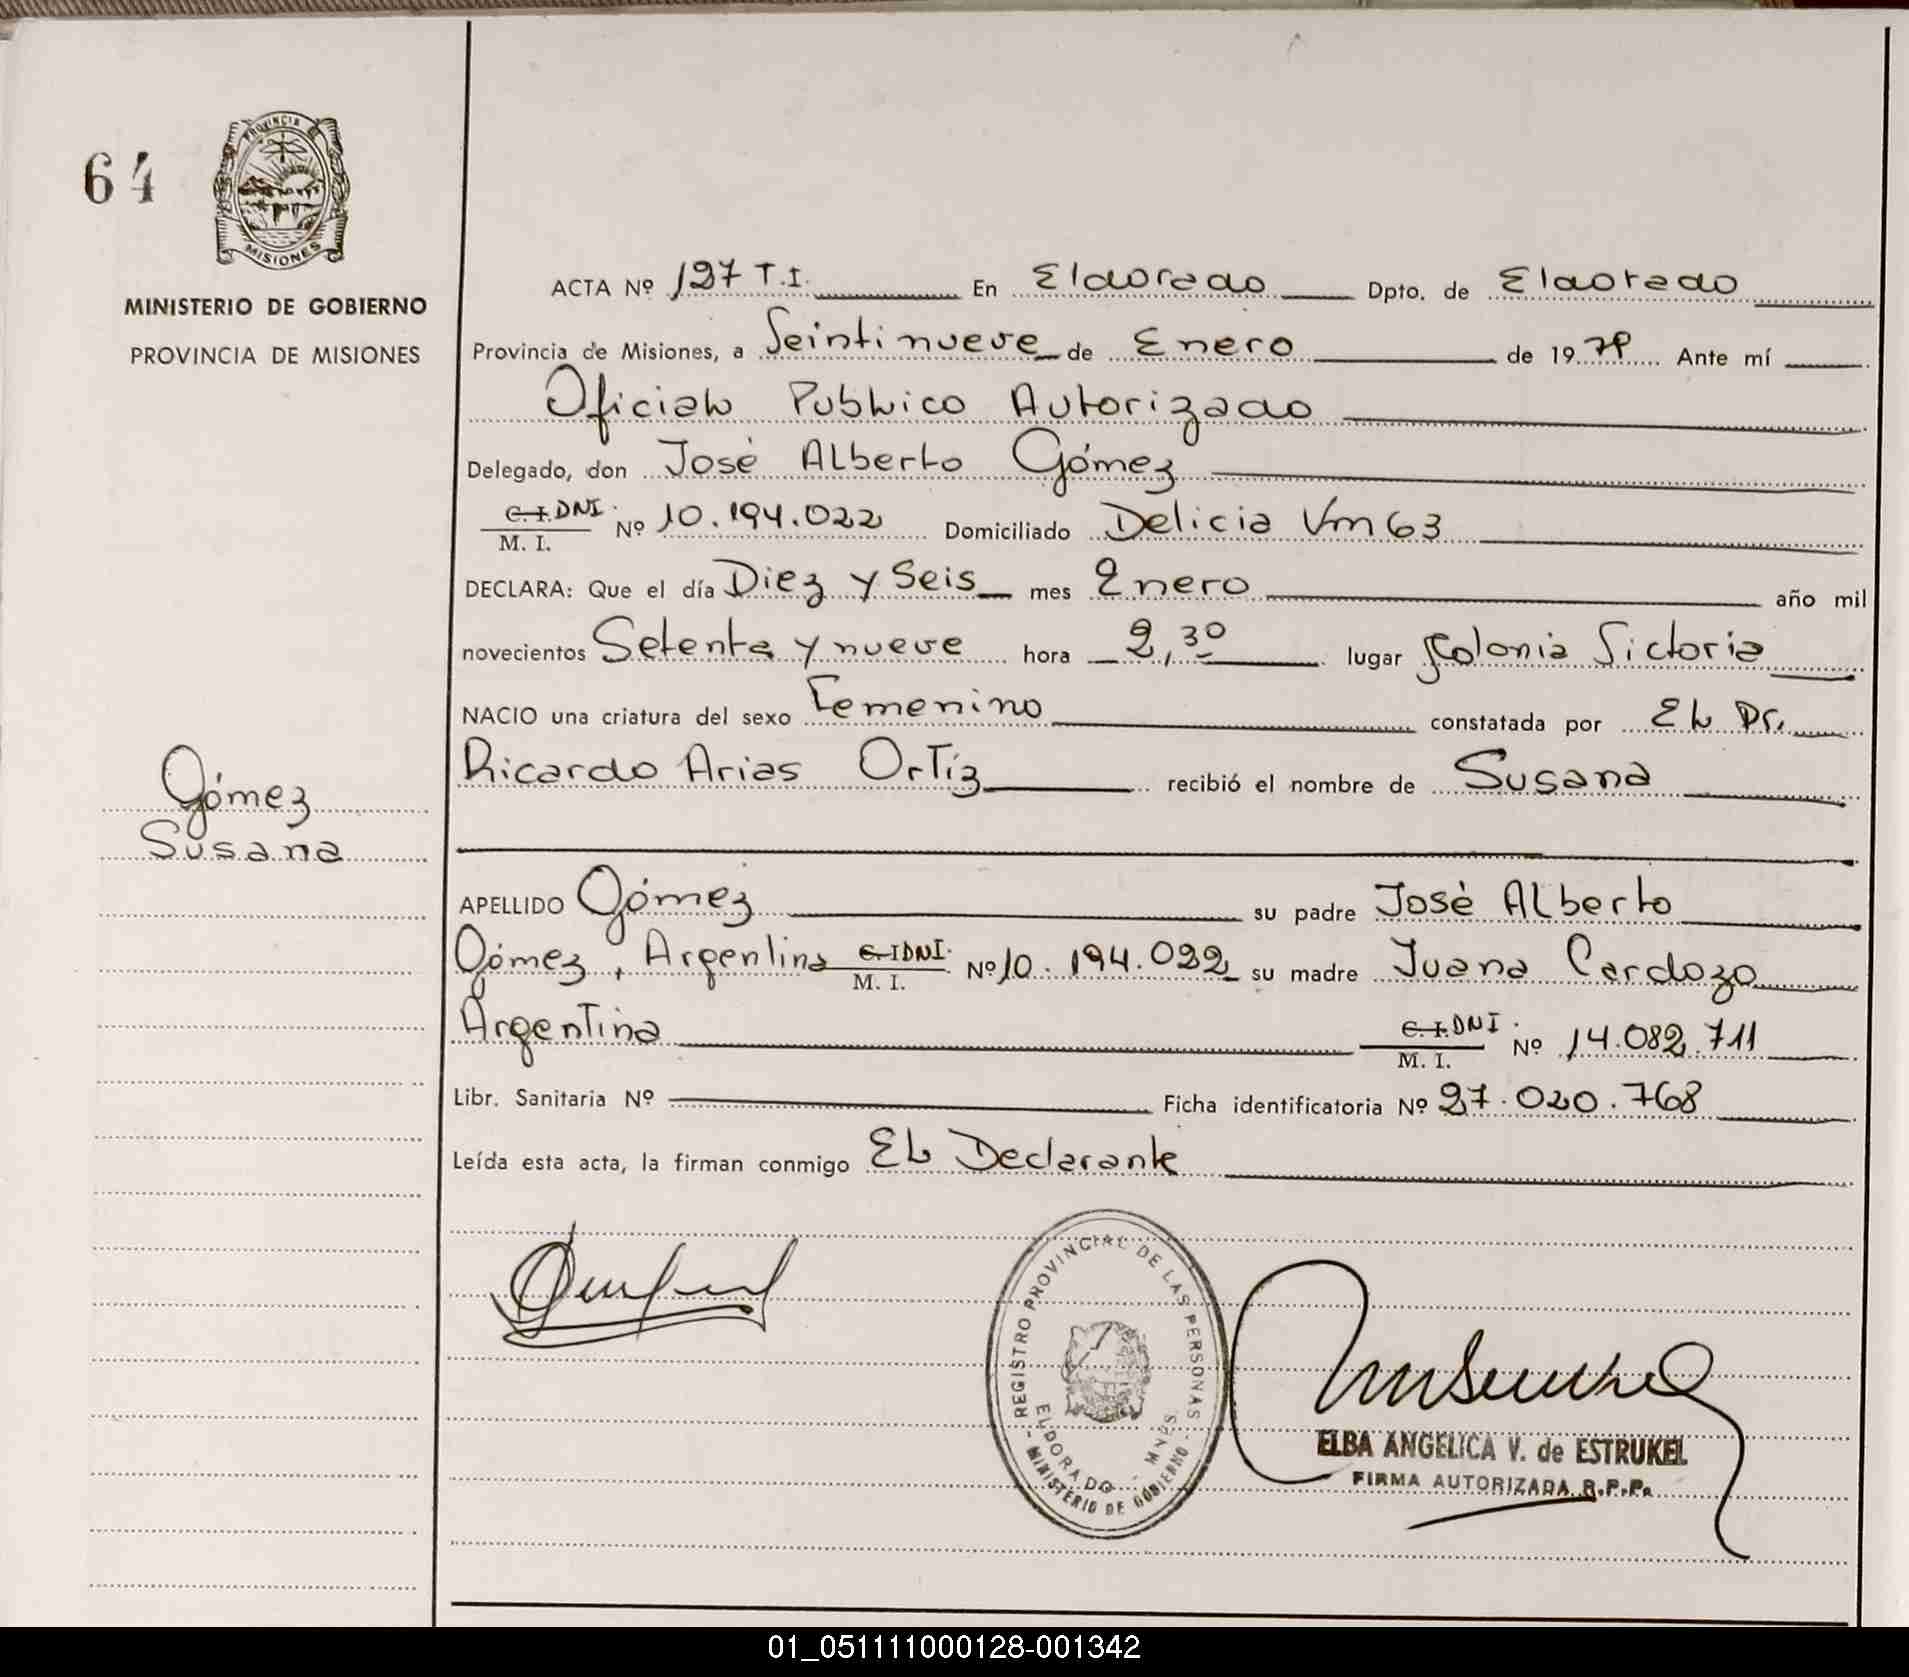 64
PROVINCIA
MISIONES
MINISTERIO DE GOBIERNO
PROVINCIA DE MISIONES
ACTA Nº 127 T.I. En Eldorado Dpto. de Eldorado
Provincia de Misiones, a Veintinueve de Enero de 1979 Ante mí
Oficial Publico Autorizado
Delegado, don José Alberto Gómez
C.I. DNI.
M. I. Nº 10.194.022 Domiciliado Delicia Km 63
DECLARA: Que el día Diez y Seis mes Enero año mil
novecientos Setenta y nueve hora 2,30 lugar Colonia Victoria
NACIO una criatura del sexo Femenino constatada por El Dr.
Ricardo Arias Ortíz recibió el nombre de Susana
Gómez
Susana
APELLIDO Gómez su padre José Alberto
Gómez, Argentino C.I. DNI. M. I. Nº 10.194.022 su madre Juana Cardozo
Argentina C.I. DNI. M. I. Nº 14.082.711
Libr. Sanitaria Nº Ficha identificatoria Nº 27.020.768
Leída esta acta, la firman conmigo El Declarante
REGISTRO PROVINCIAL DE LAS PERSONAS
ELDORADO - MNES.
- MINISTERIO DE GOBIERNO -
ELBA ANGELICA V. de ESTRUKEL
FIRMA AUTORIZADA R.P.P.
01_051111000128-001342